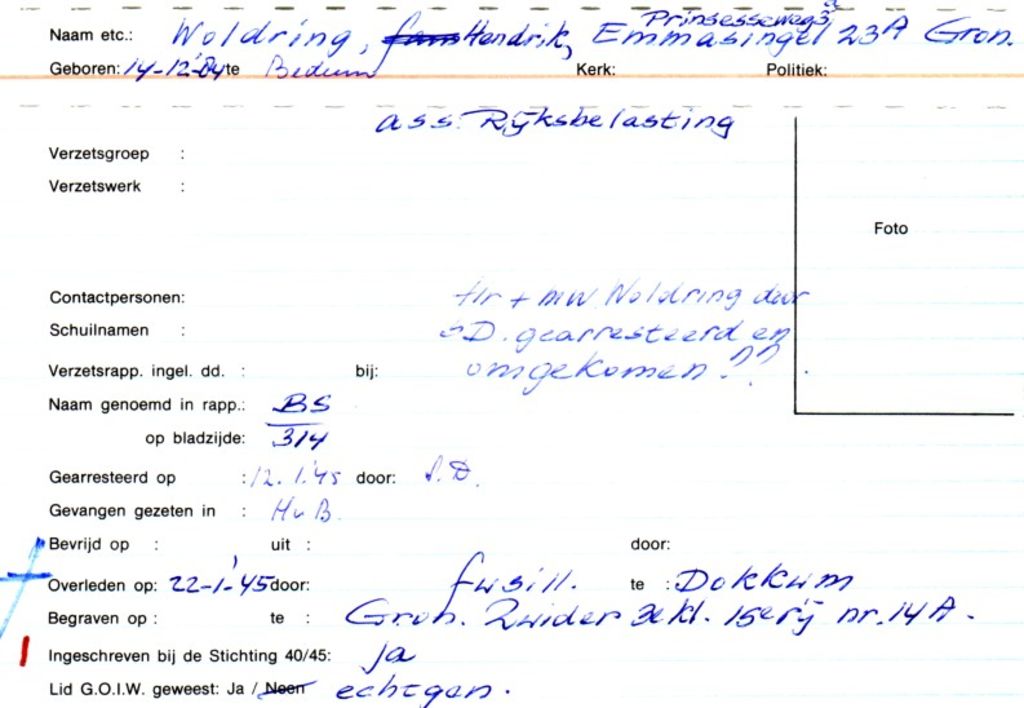 Prinsesseweg 3a
Naam etc.: Woldring, Hendrik, Emmasingel 23A Gron.
Geboren: 14-12-'04 te Bedum Kerk: Politiek:
ass. Rijksbelasting
Verzetsgroep :
Verzetswerk :
Foto
Contactpersonen: Hr + mw. Woldring door
Schuilnamen : S.D. gearresteerd en
Verzetsrapp. ingel. dd. : bij: omgekomen ??
Naam genoemd in rapp.: BS
op bladzijde: 314
Gearresteerd op : 12.1.'45 door: S.D.
Gevangen gezeten in : HvB.
Bevrijd op : uit : door:
Overleden op: 22-1-'45 door: fusill. te : Dokkum
Begraven op : te : Gron. Zuider 3e kl. 15e rij nr. 14A.
Ingeschreven bij de Stichting 40/45: ja
Lid G.O.I.W. geweest: Ja / Neen echtgen.